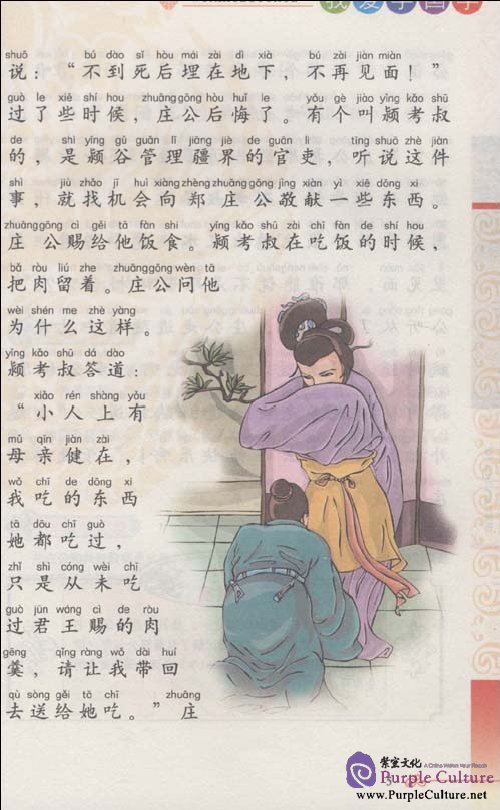 我爱学国学
shuō bú dào sǐ hòu mái zài dì xià bú zài jiàn miàn
说：“不到死后埋在地下，不再见面！”
guò le xiē shí hou zhuānggōng hòu huǐ le yǒu gè jiào yǐng kǎo shū
过了些时候，庄公后悔了。有个叫颍考叔
de shì yǐng gǔ guǎn lǐ jiāng jiè de guān lì tīng shuō zhè jiàn
的，是颍谷管理疆界的官吏，听说这件
shì jiù zhǎo jī huì xiàng zhèng zhuānggōng jìng xiàn yì xiē dōng xi
事，就找机会向郑庄公敬献一些东西。
zhuānggōng cì gěi tā fàn shí yǐng kǎo shū zài chī fàn de shí hou
庄公赐给他饭食。颍考叔在吃饭的时候，
bǎ ròu liú zhe zhuānggōng wèn tā
把肉留着。庄公问他
wèi shén me zhè yàng
为什么这样。
yǐng kǎo shū dá dào
颍考叔答道：
xiǎo rén shàng yǒu
“小人上有
mǔ qīn jiàn zài
母亲健在，
wǒ chī de dōng xi
我吃的东西
tā dōu chī guò
她都吃过，
zhǐ shì cóng wèi chī
只是从未吃
guò jūn wáng cì de ròu
过君王赐的肉
gēng qǐng ràng wǒ dài huí
羹，请让我带回
qù sòng gěi tā chī zhuāng
去送给她吃。”庄
紫宸文化 A China Within Your Reach
Purple Culture
www.PurpleCulture.net